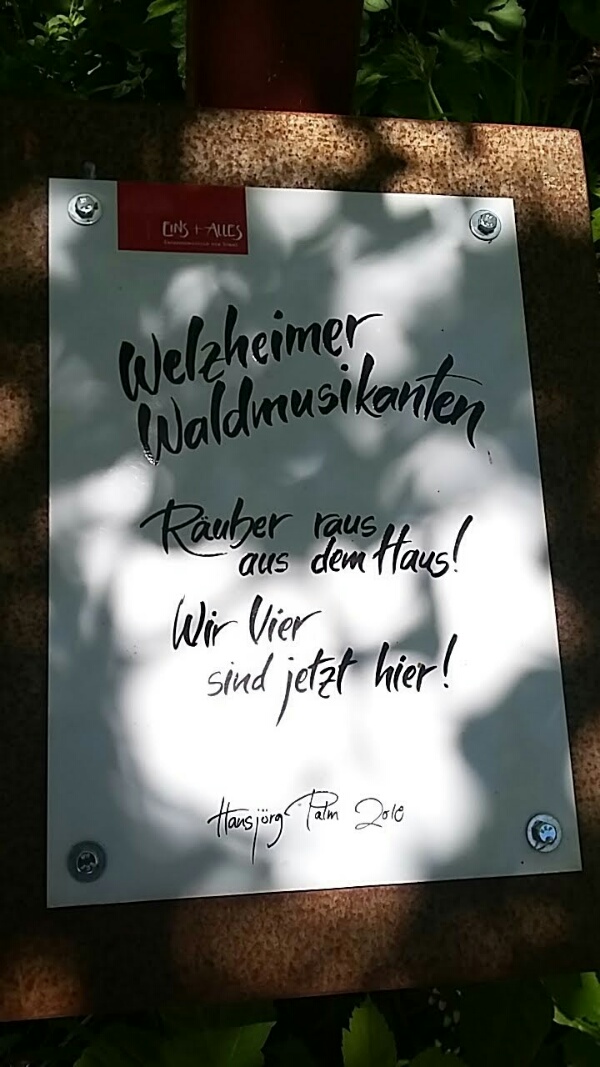 EINS + ALLES
Welzheimer
Waldmusikanten
Räuber raus
aus dem Haus!
Wir Vier
sind jetzt hier!
Hansjörg Palm 2010